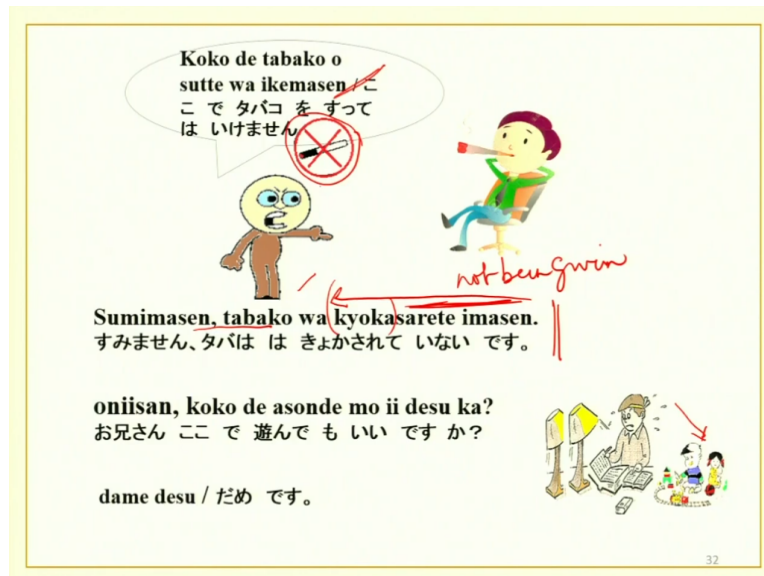 Koko de tabako o
sutte wa ikemasen / こ
こ で タバコ を すって
は いけません
not been given
Sumimasen, tabako wa kyokasarete imasen.
すみません、タバは は きょかされて いない です。
oniisan, koko de asonde mo ii desu ka?
お兄さん ここ で 遊んで も いい です か?
dame desu / だめ です。
32